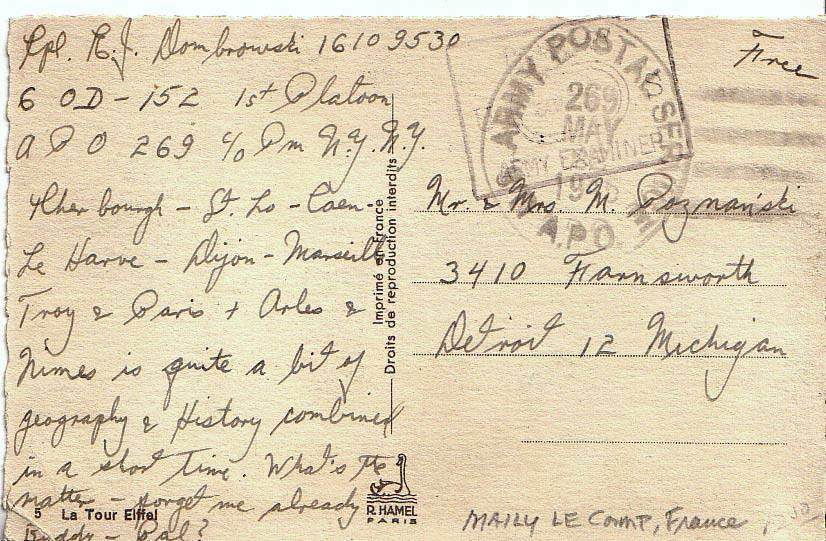 Cpl. E.J. Dombrowski 16109530
6 OD - 152 1st Platoon
A P O 269 c/o Pm N.Y. N.Y.
Cherbourgh - St. Lo - Caen -
Le Harve - Dijon - Marseille
Troy & Paris + Arles &
Nimes is quite a bit of
geography & History combined
in a short time. What's the
matter - forget me already
Buddy - Pal?
5 La Tour Eiffel
Imprimé en France
Droits de reproduction interdits
R. HAMEL
PARIS
Free
ARMY POSTAL SER
269
MAY
ARMY EXAMINER
A.P.O.
Mr. & Mrs. M. Poznański
3410 Farnsworth
Detroit 12 Michigan
MAILY LE COMP, France